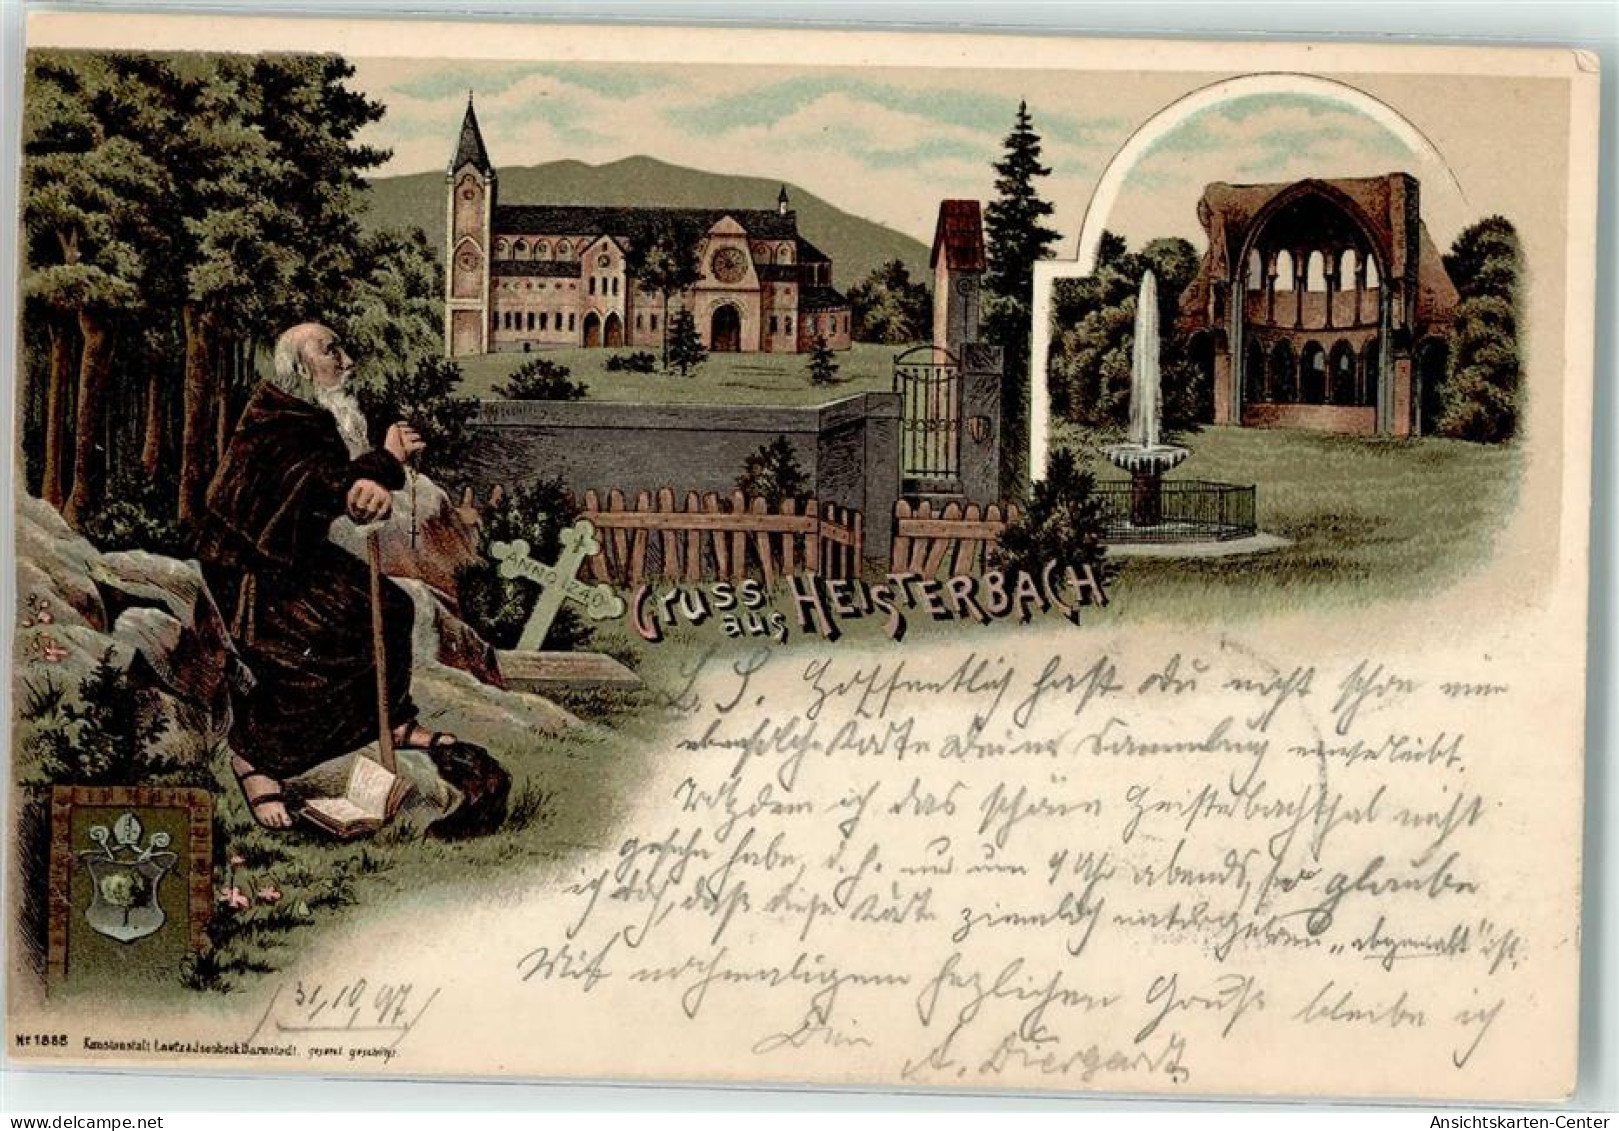 ANNO 1240
Gruss
aus HEISTERBACH
L. S. Hoffentlich hast Du nicht schon eine
ebensolche Karte Deiner Sammlung einverleibt.
Trotzdem ich das schöne Heisterbachthal nicht
gesehn habe, d. h. nur um 9 Uhr abends, so glaube
ich doch, dass diese Karte ziemlich naturgetreu „abgemalt" ist.
Mit nochmaligem herzlichen Gruß bleibe ich
Dein
A. Diergardt
(31,10,97.)
Nr 1888 Kunstanstalt Lautz & Isenbeck Darmstadt. gesetzl. geschützt.
Ansichtskarten-Center